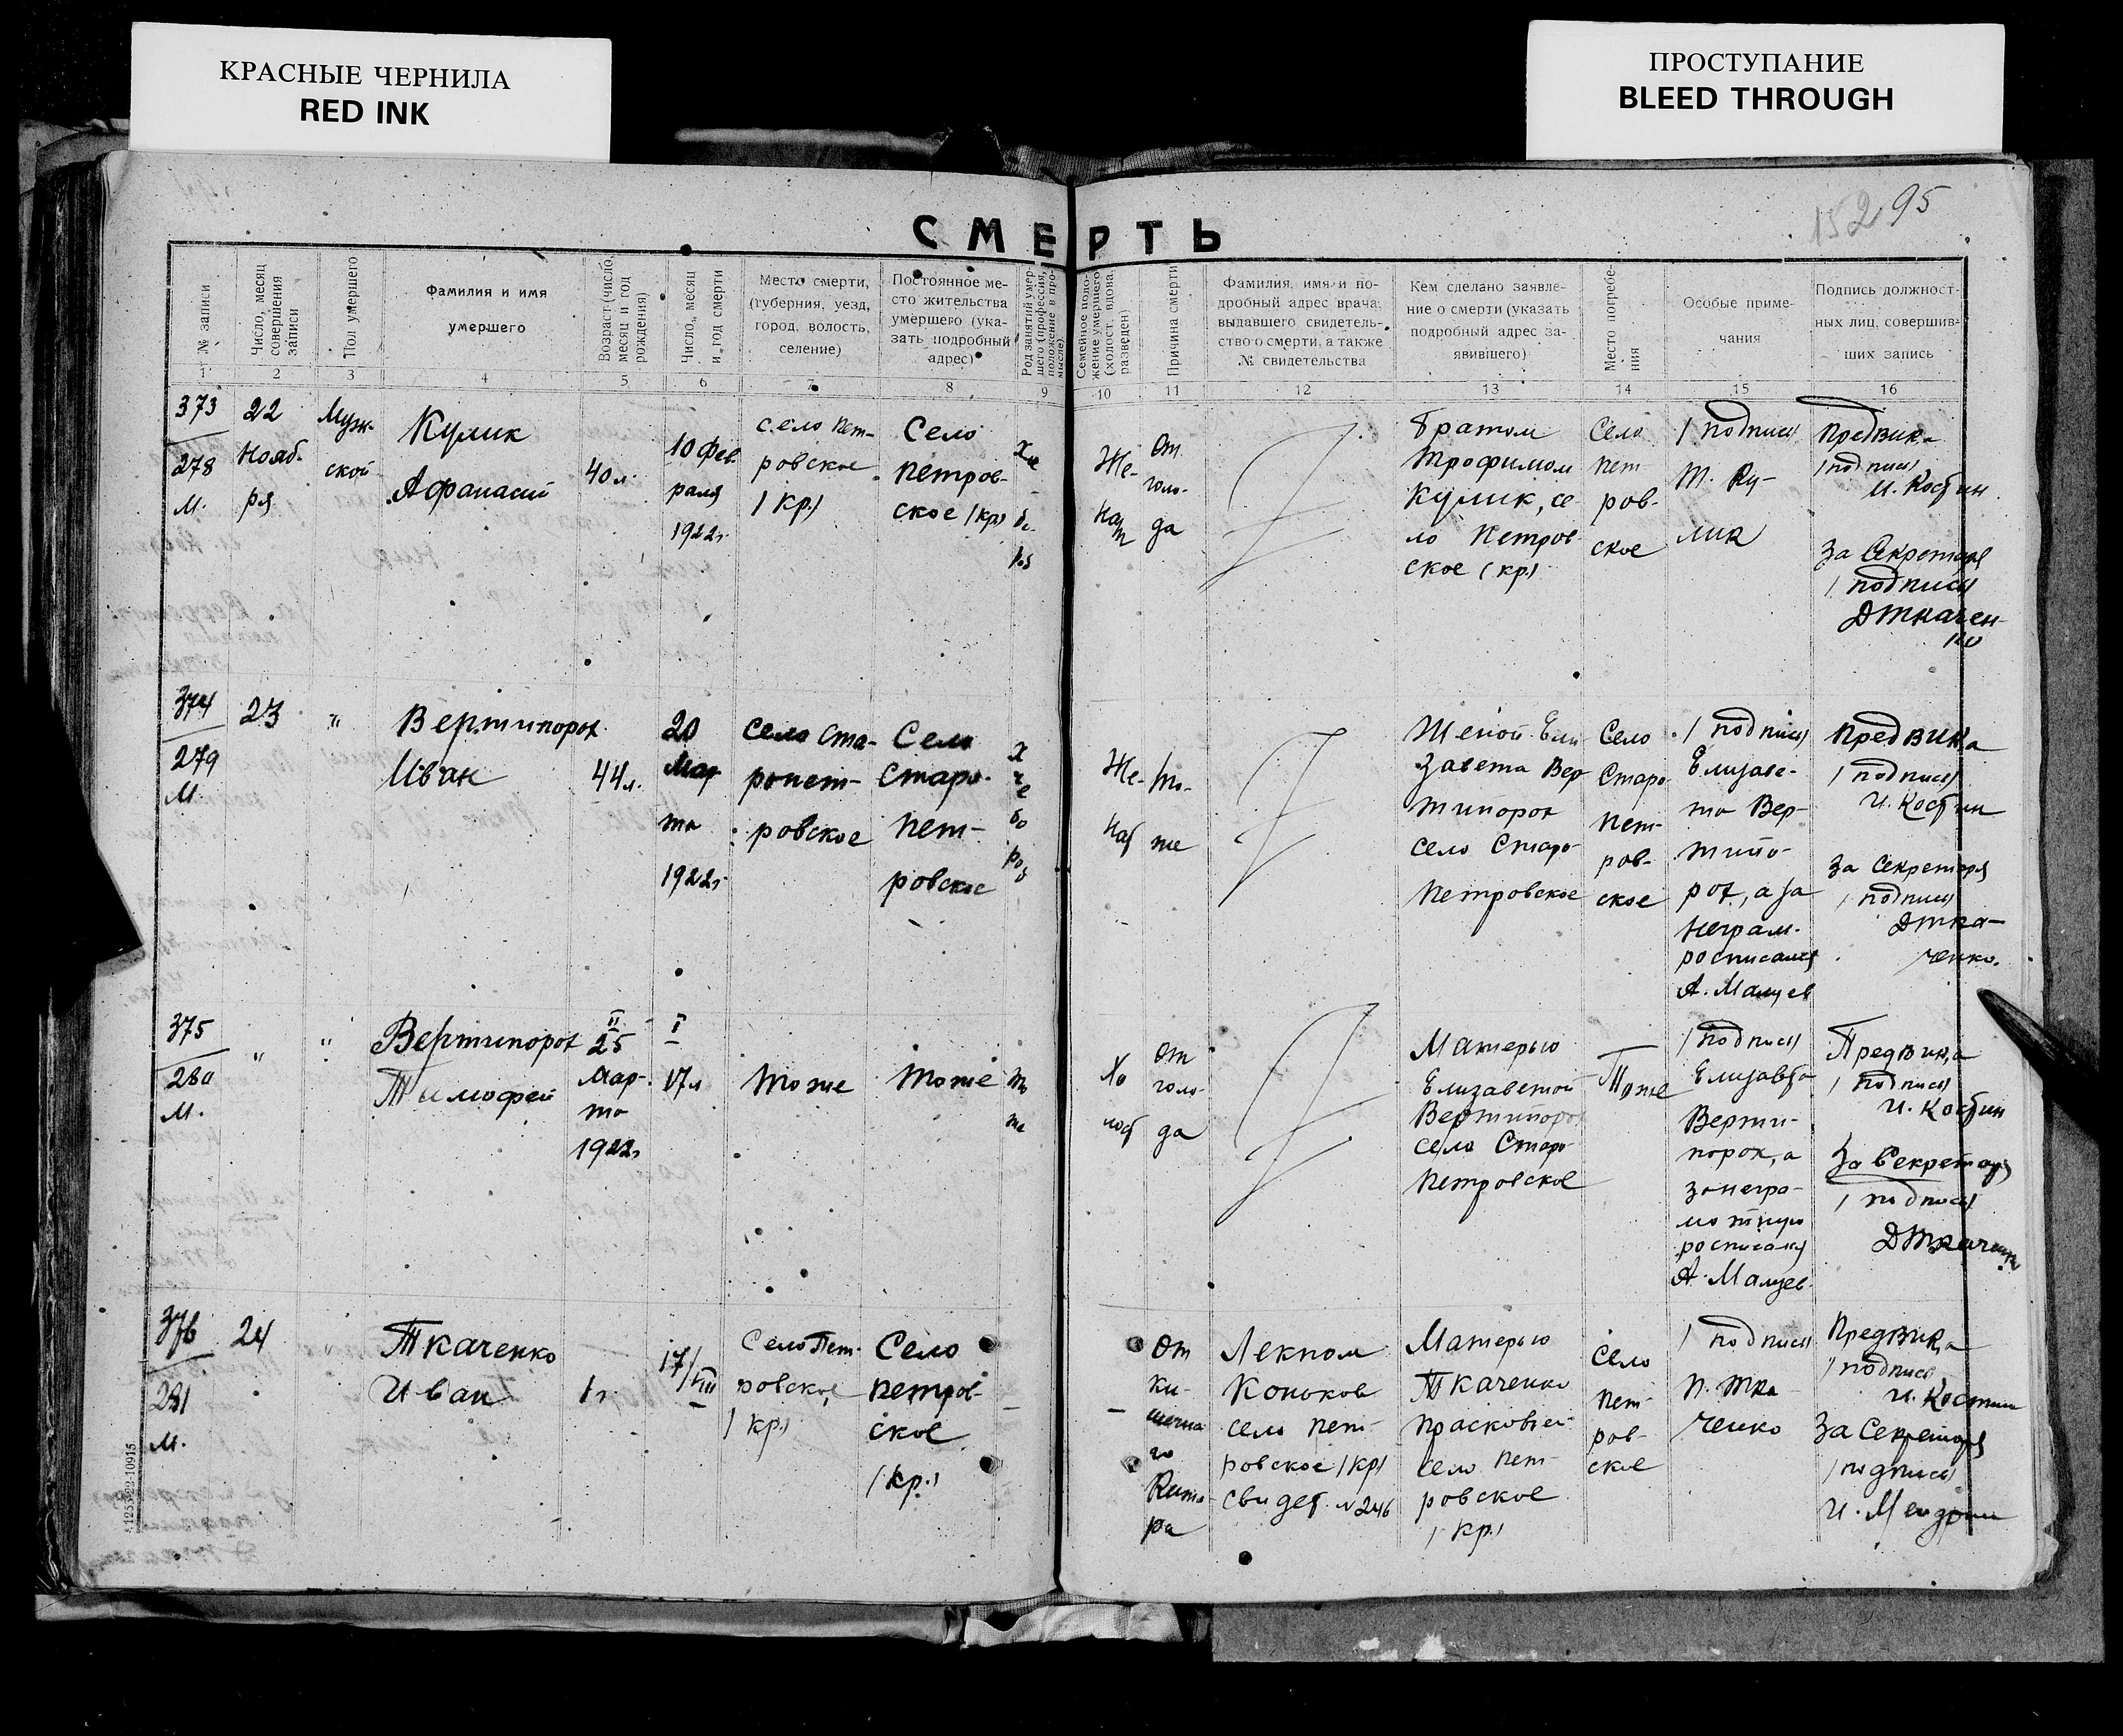 КРАСНЫЕ ЧЕРНИЛА
RED INK
ПРОСТУПАНИЕ
BLEED THROUGH
152 95
СМЕРТЬ
№ записи
Число, месяц совершения записи
Пол умершего
Фамилия и имя
умершего
Возраст (число, месяц и год рождения)
Число, месяц и год смерти
Место смерти,
(губерния, уезд,
город, волость,
селение)
Постоянное ме-
сто жительства
умершего (ука-
зать подробный
адрес)
Род занятий умер-
шего (профессия,
положение в про-
мысле)
Семейное поло-
жение умершего
(холост, вдова,
разведен)
Причина смерти
Фамилия, имя и по-
дробный адрес врача,
выдавшего свидетель-
ство о смерти, а также
№ свидетельства
Кем сделано заявле-
ние о смерти (указать
подробный адрес за-
явившего)
Место погребе-
ния
Особые приме-
чания
Подпись должност-
ных лиц, совершив-
ших запись
1 2 3 4 5 6 7 8 9 10 11 12 13 14 15 16
373
278
М.
22
Нояб-
ря
Муж-
ской
Кулик
Афанасий
40 л.
10 фев
раля
1922 г.
село Пет-
ровское
(кр.)
Село
Петров-
ское (кр)
Же-
нат
От
голо-
да
Братом
Трофимом
Кулик, се-
ло Петров
ское (кр.)
Село
Пет
ров-
ское
(подпись)
Т. Ку-
лик
Предвика
(подпись)
И. Костин
За Секретаря
(подпись)
Д Ткачен-
ко
374
279
М
23
"
Вертипорох
Иван
44 л.
20
Мар
та
1922 г.
Село Ста-
ропет-
ровское
Село
Старо-
Пет-
ровское
Же-
нат
То-
же
Женой Ели
завета Вер
типорох
село Старо-
Петровское
Село
Старо
Пет-
ров-
ское
(подпись)
Елизаве-
та Вер-
типо-
рох, а за
Неграм.
росписался
А. Малцев
Предвика
(подпись)
И. Костин
За Секретаря
(подпись)
Д Тка-
ченко.
375
280
М.
"
"
Вертипорох
Тимофей
II
25
Мар-
та
1922 г
I
17 л
Тоже
Тоже
То
же
Хо
лост
От
голо-
да
Матерью
Елизаветой
Вертипорох
село Старо
Петровское
Тоже
(подпись)
Елизавета
Верти-
порох, а
за негра-
мотную
росписался
А. Малцев.
Предвика
(подпись)
И. Костин
За Секретаря
(подпись)
Д Ткаченко
376
281
М.
24
"
Ткаченко
Иван
1 г.
17/VIII
Село Пет-
ровское
(кр.)
Село
Петров-
ское
(кр.)
От
ки-
шечна
го
Ката-
ра
Лекпом
Коньков
село Пет-
ровское (кр)
свидет. №246
Матерью
Ткаченко
Прасковьей
село Пет-
ровское
(кр.)
Село
Пет-
ров-
ское
(подпись)
П. Тка-
ченко
Предвика
(подпись)
И. Костин
За Секретаря
(подпись)